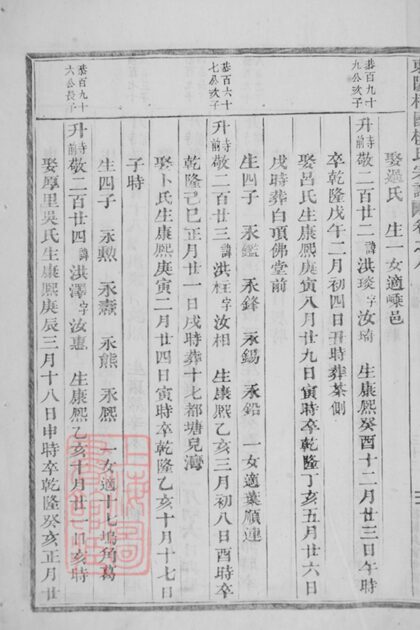 娶過氏 生一女適嵊邑
恭百九十九公次子
升寺前敬二百廿二諱洪琰字汝瑜 生康熙癸酉十二月廿三日午時
卒乾隆戊午二月初四日丑時葬茶側
娶呂氏生康熙庚寅八月廿九日寅時卒乾隆丁亥五月廿六日
戌時葬白項佛堂前
生四子 永鑑 永鋒 永錫 永鉛 一女適葉順連
恭百六十七公次子
升寺前敬二百廿三諱洪柱字汝相 生康熙乙亥三月初八日酉時卒
乾隆己巳正月廿一日戌時葬十七都塘兒灣
娶卜氏生康熙庚寅二月廿四日寅時卒乾隆乙亥十月十七日
子時
生四子 永勲 永燾 永熊 永熙 一女適十七塢角葛
恭百九十六公長子
升寺前敬二百廿四諱洪澤字汝惠 生康熙乙亥十月廿二日亥時
娶厚里吳氏生康熙庚辰三月十八日申時卒乾隆癸亥正月廿